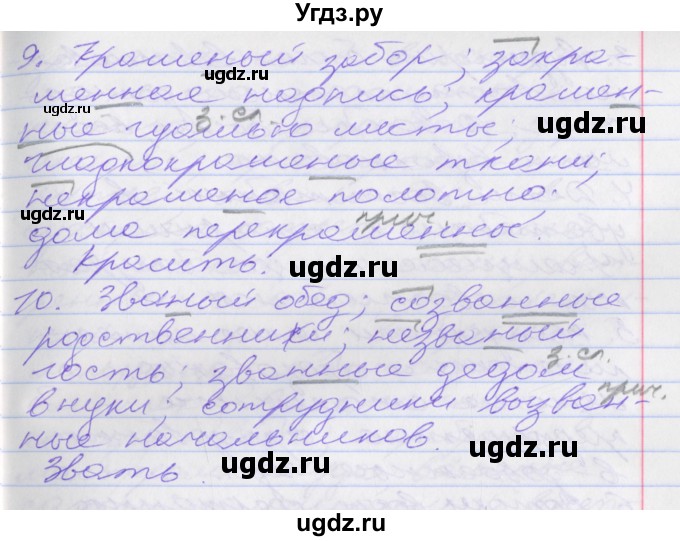 Угдз.ру
9. Крашеный забор; закра-
шенная надпись; крашен-
з. сл.
ные гуашью листы;
гладкокрашеные ткани;
некрашеное полотно;
прич.
дома перекрашенные.
Красить.
10. Званый обед; созванные
родственники; незваный
з. сл.
гость; званные дедом
прич.
внуки; сотрудники вызван-
ные начальников.
Звать.
ugdz.ru
ugdz.ru
ugdz.ru
ugdz.ru
ugdz.ru
ugdz.ru
ugdz.ru
ugdz.ru
ugdz.ru
ugdz.ru
ugdz.ru
ugdz.ru